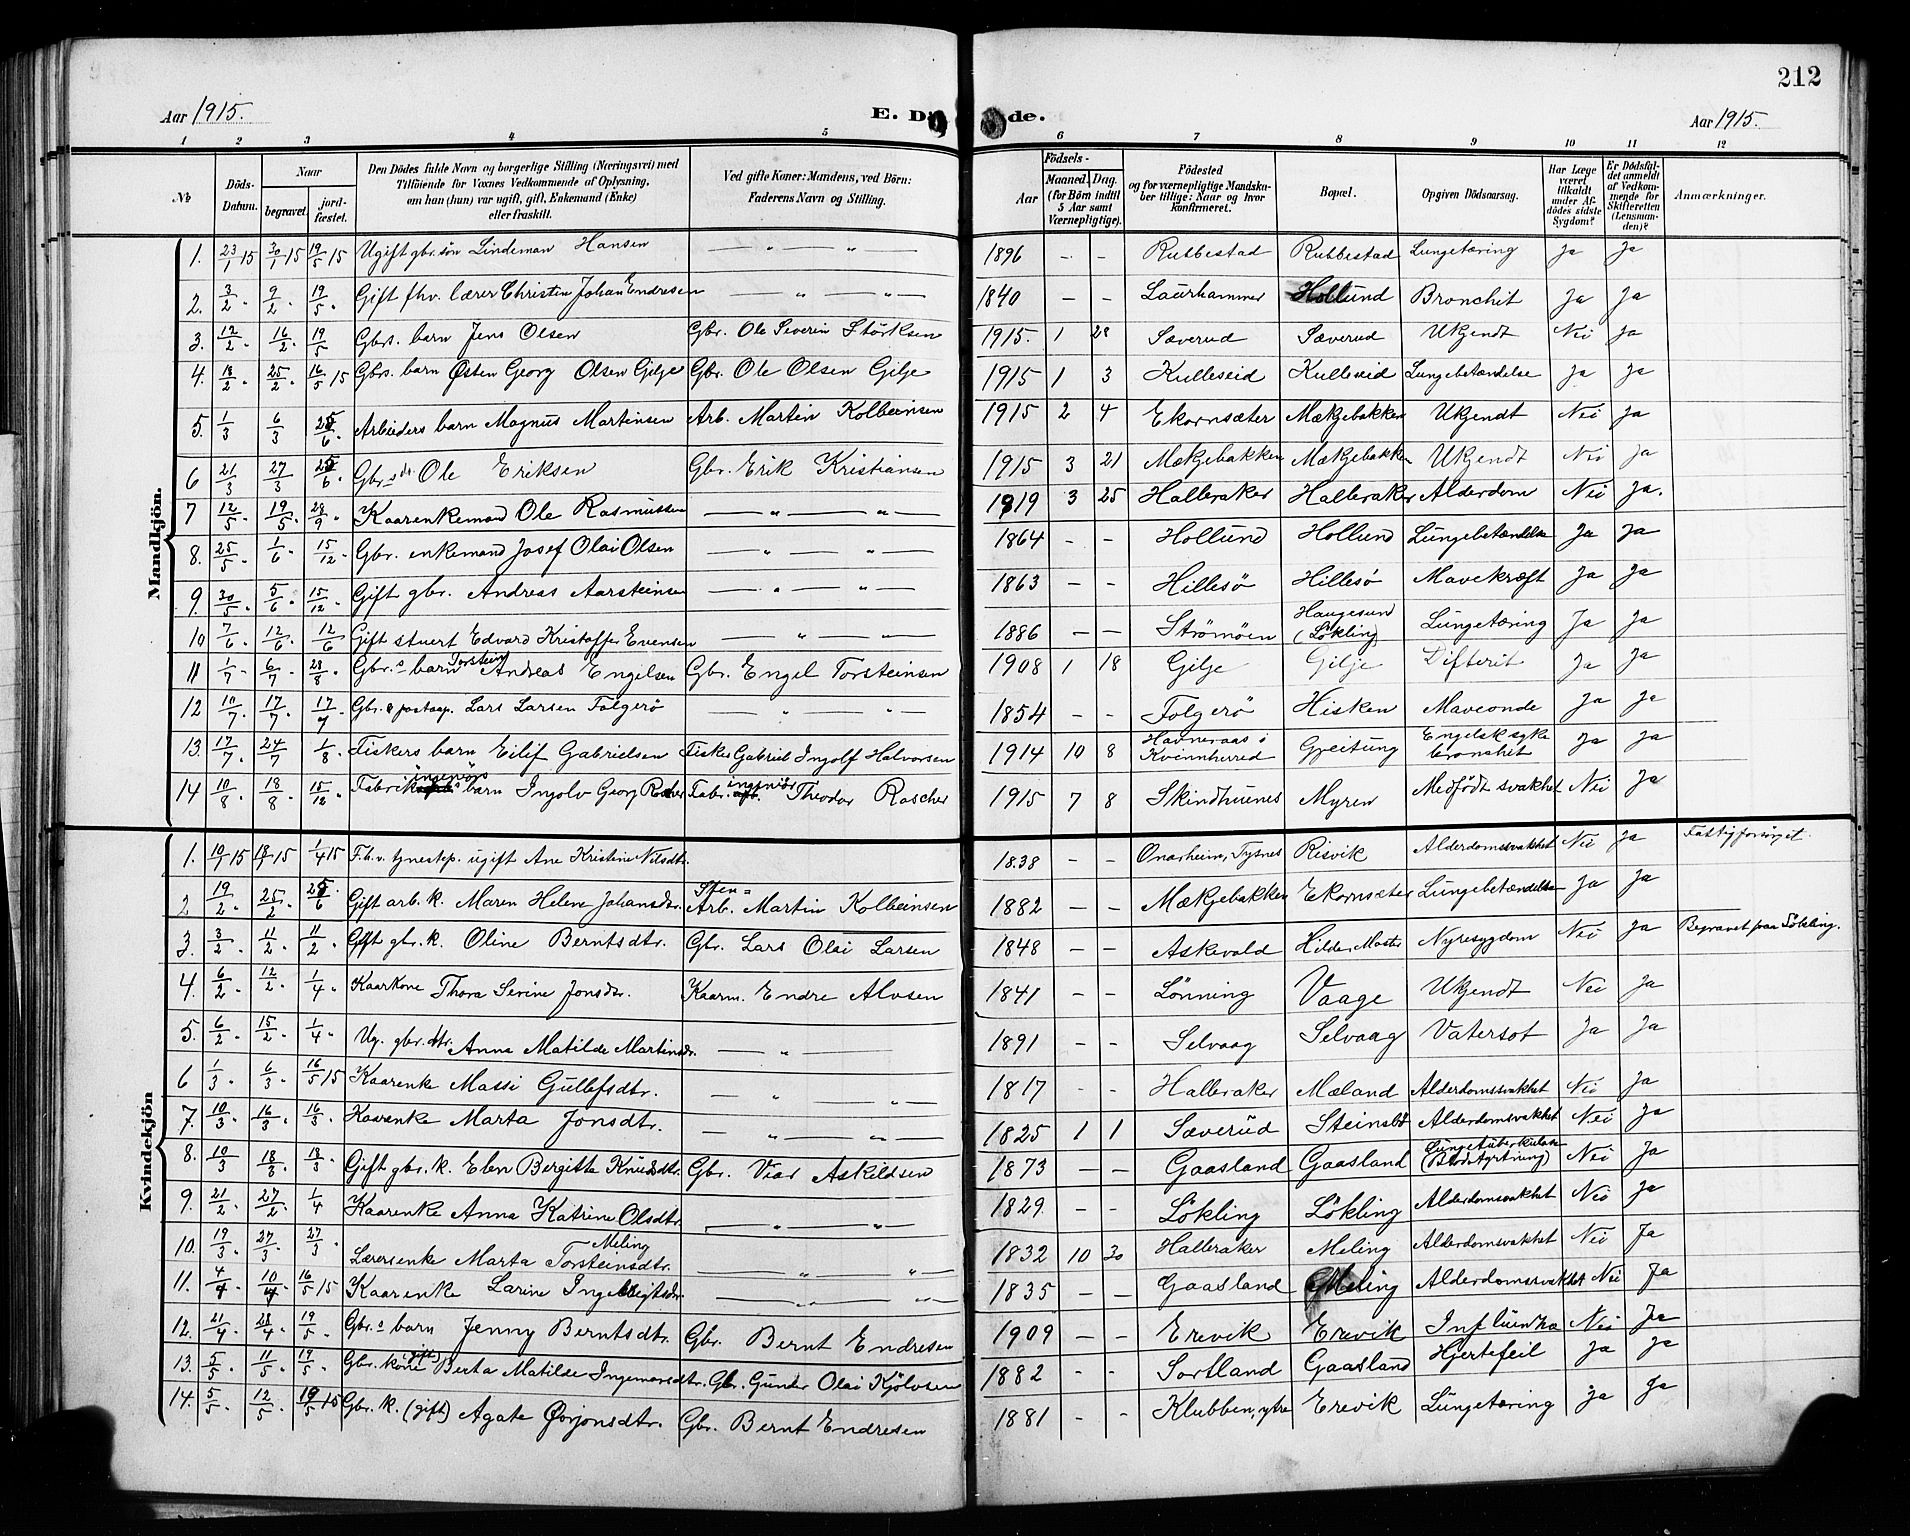 212
Aar 1915.
E. Dö de.
Aar 1915.
1 2 3 4 5 6 7 8 9 10 11 12
No
Döds-Datum.
Naar
begravet.
jordfæstet.
Den Dödes fulde Navn og borgerlige Stilling (Næringsvei) med
Tilföiende for Voxnes Vedkommende af Oplysning,
om han (hun) var ugift, gift, Enkemand (Enke)
eller fraskilt.
Ved gifte Koner: Mandens, ved Börn:
Faderens Navn og Stilling.
Födsels-
Aar
Maaned. Dag.
(for Börn indtil 5 Aar samt Værnepligtige).
Födested
og for værnepligtige Mandskaber tillige: Naar og hvor konfirmeret.
Bopæl.
Opgiven Dödsaarsag.
Har Læge været tilkaldt under Afdödes sidste Sygdom?
Er Dödsfaldet anmeldt af Vedkommende for Skifteretten (Lensmanden)?
Anmærkninger.
Mandkjön.
1. 23/1 15 30/1 15 19/5 15 Ugift gbr. sön Lindeman Hansen — " — " — 1896 - - Rubbestad Rubbestad Lungetæring Ja Ja
2. 3/2 " 9/2 " 19/5 " Gift fhv. lærer Christen Johan Endresen — " — " — 1840 - - Laurhammer Hollund Bronchit Ja Ja
3. 12/2 " 16/2 " 19/5 Gbrs. barn Jens Olsen Gbr. Ole Severin Störksen 1915. 1 28 Sæverud Sæverud Ukjendt Nei Ja
4. 18/2 " 25/2 " 16/5 15 Gbrs. barn Østen Georg Olsen Gilje Gbr. Ole Olsen Gilje 1915 1 3 Kulleseid Kulleseid Lungebetændelse Ja Ja
5. 1/3 6/3 25/6 " Arbeiders barn Magnus Martinsen Arb. Martin Kolbeinsen 1915 2 4 Ekornsæter Mækjebakken Ukjendt Nei Ja
6 21/3 27/3 25/6 " Gbr. s Ole Eriksen Gbr. Erik Kristiansen 1915 3 21 Mækjebakken Mækjebakken Ukjendt Nei Ja
7 12/5 " 19/5 " 28/9 " Kaarenkemand Ole Rasmussen — " — " — 1819 3 25 Halleraker Halleraker Alderdom Nei Ja.
8. 25/5 " 1/6 " 15/12 " Gbr. enkemand Josef Olai Olsen — " — " — 1864 - - Hollund Hollund Lungebetændelse Ja Ja
9. 30/5 " 5/6 " 15/12 " Gift gbr. Andreas Aarsteinsen — " — " — 1863 - - Hillesö Hillesö Mavekræft Ja Ja
10 7/6 " 12/6 " 12/6 Gift stuert Edvard Kristoffer Evensen — " — " — 1886 — — Strömöen Haugesund (Lökling) Lungetæring Ja Ja
11 1/7 " 6/7 " 28/8 " Gbr.s barn Torstein Andreas Engelsen Gbr. Engel Torsteinsen 1908 1 18 Gilje Gilje Difterit Ja Ja
12 10/7 " 17/7 " 17/7 " Gbr. & postaap. Lars Larsen Folgerö — " — " — 1854 - - Folgerö Hisken Maveonde Ja Ja
13. 17/7 " 24/7 1/8 " Fiskers barn Eilif Gabrielsen Fisker Gabriel Ingolf Halvorsen 1914 10 8 Havneraas i Kvinnherred Greitung Engelsk syke bronchit Ja Ja
14 10/8 18/8 15/12 " Fabrik ingeniörs barn Ingolv Georg Rascher Fabr. ingeniör Theodor Rascher 1915 7 8 Skindhuenes Myren Medfödt svakhet Nei Ja
Kvindekjön
1. 10/1 15 18/1 15 1/4 15 F.b.v. tjnestep. ugift Ane Kristine Nilsdtr. 1838 - - Onarheim, Tysnes Risvik Alderdomssvakhet Nei Ja Fattigforsörget.
2 19/2 " 25/2 " 25/6 " Gift arb. k. Maren Helene Johansdtr. Sten= Arb. Martin Kolbeinsen 1882 - - Mækjebakken Ekornsæter Lungebetændelse Ja Ja
3. 3/2 " 11/2 " 11/2 " Gift gbr. k. Oline Berntsdtr. Gbr. Lars Olai Larsen 1848 - - Askevold Hilder, Moster Nyresygdom Nei Ja Begravet paa Lökling.
4. 6/2 " 12/2 " 1/4 " Kaarkone Thora Serine Jonsdtr. Kaarm. Endre Alvsen 1841 - - Lönning Vaage Ukjendt Nei Ja
5. 6/2 " 15/2 " 1/4 " Ug. gbr. dtr. Anna Matilde Martinsdtr. — " — 1891 - - Selvaag Selvaag Vatersot Ja Ja
6 1/3 " 6/3 " 16/5 15 Kaarenke Massi Gullefsdtr. — " — " — 1817 - - Halleraker Mæland Alderdomssvakhet Nei Ja
7. 10/3 " 16/3 " 16/3 " Kaarenke Marta Jonsdtr. — " — " — 1825 1 1 Sæverud Steinsbö Alderdomssvakhet Nei Ja
8. 10/3 18/3 " 18/3 " Gift gbr. k. Elen Bergitta Knudsdtr. Gbr. Viar Askildsen 1873 - Gaasland Gaasland Lungetuberkulose (Blodstyrtning) Nei Ja
9. 21/2 " 27/2 " 1/4 Kaarenke Anna Katrine Olsdtr. — " — " — 1829 - - Lökling Lökling Alderdomssvakhet Nei Ja
10. 19/3 " 27/3 " 27/3 " Lærersenke Marta Torsteinsdtr. Meling — " — " — 1832 10 30 Halleraker Meling Alderdomssvakhet Nei Ja
11. 4/4 " 10/4 " 16/5 15 Kaarenke Larine Ingebrigtsdtr. — " — " — 1835 - - Gaasland Meling Alderdomssvakhet Nei Ja
12. 21/4 " 28/4 " 19/5 " Gbr.s barn Jenny Berntsdtr. Gbr. Bernt Endresen 1909 - - Erevik Erevik Influenza Nei Ja
13. 5/5 " 11/5 " 19/5 " Gbr. kone (gift) Berta Matilde Ingemarsdtr. Gbr. Gunder Olai Kjölvsen 1882 - - Sortland Gaasland Hjertefeil Ja Ja
14. 5/5 " 12/5 " 19/5 15 Gbr. k. (gift) Agate Ørjonsdtr. Gbr. Bernt Endresen 1881 - - Klubben, ytre Erevik Lungetæring Ja Ja